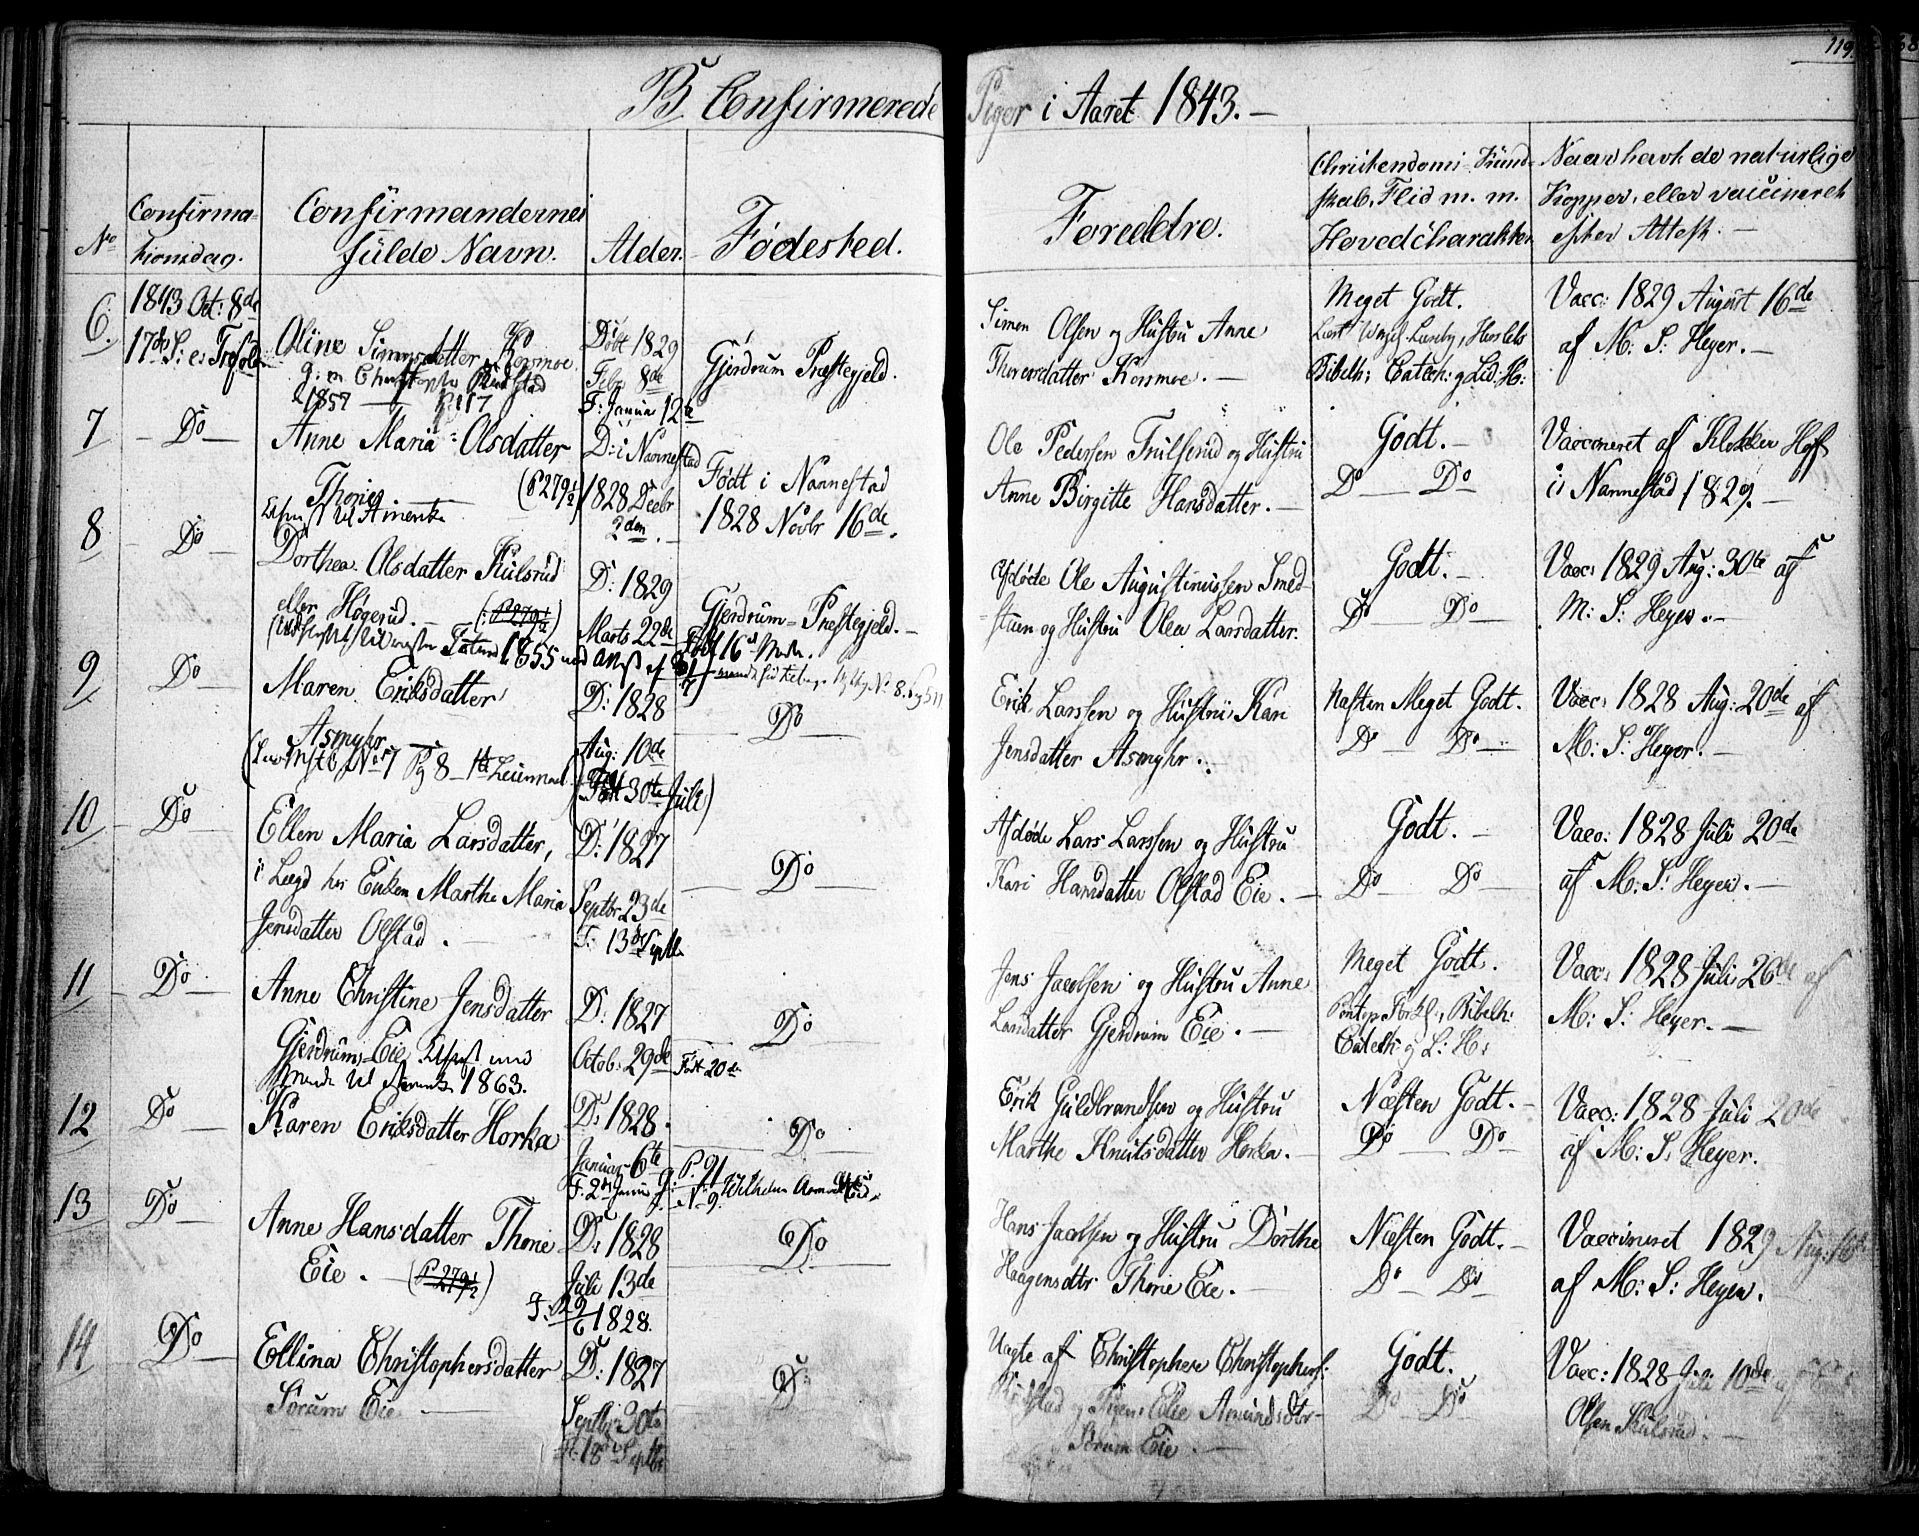 119.
B Confirmerede Piger i Aaret 1843.—
No
Confirma-
tionsdag.
Confirmandernes
fulde Navn.
Alder.
Fødested.
Foreldre.
Christendoms-Kund-
skab, Flid m. m.
Hovedcharakter
Naar havt de naturlige
Kopper, eller vaccineret
efter Attest.—
6.
1843 Oct: 8de
17de S: e: Trefol:
Oline Simensdatter Kosmoe
g: m Christopher Rudstad
1857
Døbt 1829
Febr 8de
F: Januar 12te
Gjerdrum Præstegjeld.
Simen Olsen og Hustru Anne
Thorersdatter Kosmoe.—
Meget Godt.
Bibelh: Catech: og L: H:
Vacc: 1829 August 16de
af M: S: Heyer.—
7
—Do—
Anne Maria Olsdatter
Thorier
(P 279½)
til Amerika
D: i Nannestad
1828 Decbr
2den.—
Født i Nannestad
1828 Novbr 16de.
Ole Pedersen Trulserud og Hustru
Anne Birgitte Hansdatter.—
Godt.—
Do — Do
Vaccineret af Klokker Hoff
i Nannestad 1829.—
8
—Do—
Dorthea Olsdatter Kulsrud
eller Høgerud.—
(: P 279½)
1855 med Attest af 21/7
D: 1829
Marts 22de
Født 16de Marts.
Gjerdrum=Præstegjeld.—
Afdøde Ole Augustinussen Smed-
stuen og Hustru Olea Larsdatter.
Godt.—
Do — Do—
Vacc: 1829 Aug: 30te af
M: S: Heyer.—
9
Do—
Maren Eriksdatter
Asmyhr
No 7 Pg 8
D: 1828
Aug: 10de
(Født 30te Juli)
—Do—
Erik Larssen og Hustru Kari
Jensdatter Asmyhr.
Næsten Meget Godt.
Do — Do—
Vacc: 1828 Aug: 20de af
M: S: Heyer.—
10
—Do—
Ellen Maria Larsdatter,
i Lægd hos Enken Marthe Maria
Jensdatter Olstad.—
D: 1827
Septbr 23de
F: 13de Septbr
—Do—
Afdøde Lars Larssen og Hustru
Kari Hansdatter Olstad Eie.—
Godt.—
Do — Do—
Vacc: 1828 Juli 20de
af M: S: Heyer.—
11
—Do—
Anne Christine Jensdatter
Gjerdrum-Eie
til Amerika 1863.
D: 1827
Octob: 29de
Født 20de
—Do—
Jens Jacobsen og Hustru Anne
Larsdatter Gjerdrum Eie.—
Meget Godt.
Pontop: Forkl:, Bibelh:
Catech: og L: H:
Vacc: 1828 Juli 20de af
M: S: Heyer.—
12
Do—
Karen Eriksdatter Horka
D: 1828.
Januar 6te
F: 2den Januar
g: P. 91
No 9.
—Do
Erik Guldbrandsen og Hustru
Marthe Knutsdatter Horka.—
Næsten Godt.—
Do — Do
Vacc: 1828 Juli 20de
af M: S: Heyer.
13
Do—
Anne Hansdatter Thorie
Eie.—
(P 279½)
D: 1828
Juli 13de
F: 29/6 1828.
—Do—
Hans Jacobsen og Hustru Dorthe
Haagensdtr Thorie Eie.—
Næsten Godt.—
Do — Do
Vaccineret 1829 Aug: 16de
af M: S: Heyer.—
14
—Do—
Ellina Christophersdatter
Sørum Eie.—
D: 1827
Septbr 30te
F: 18de Septbr
Do
Uægte af Christopher Christophers:
Rudstad og Pigen Eline Amundsdtr—
Sørum Eie.—
Godt.
Do — Do
Vacc: 1828 Juli 10de af
Olsen Kulsrud.—